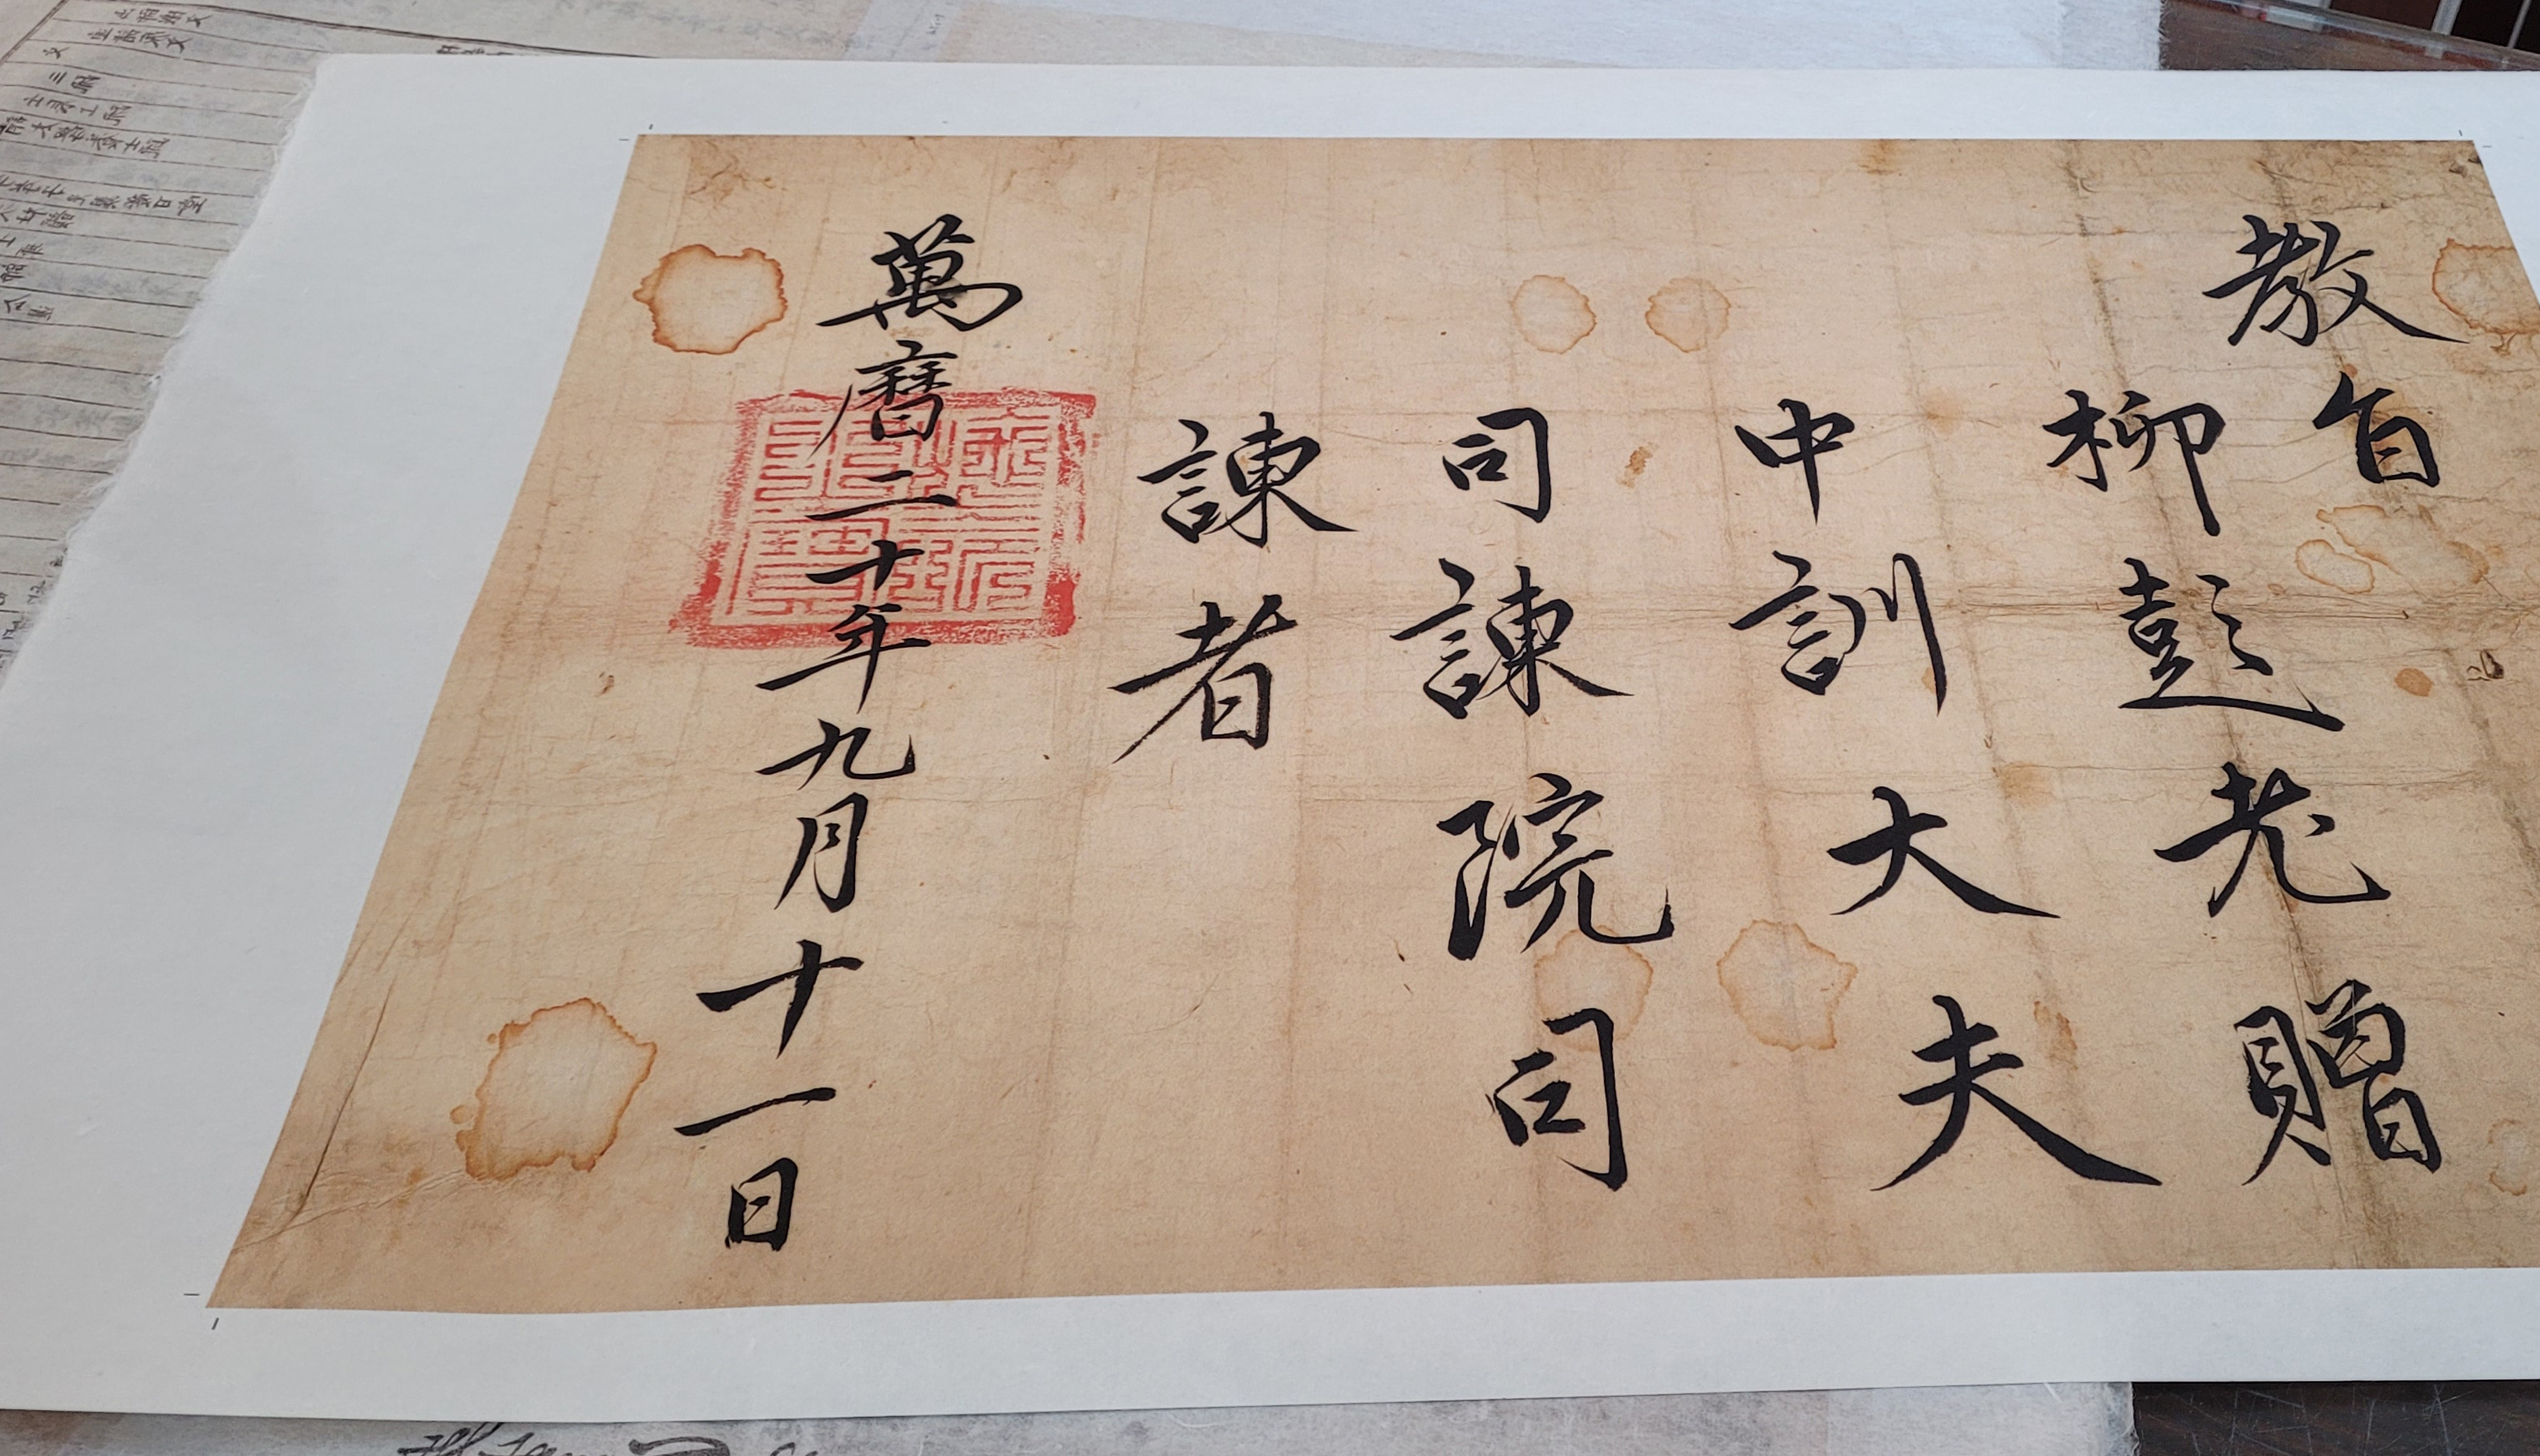 教旨
柳彭老贈
中訓大夫
司諫院司
諫者
萬曆二十年九月十一日